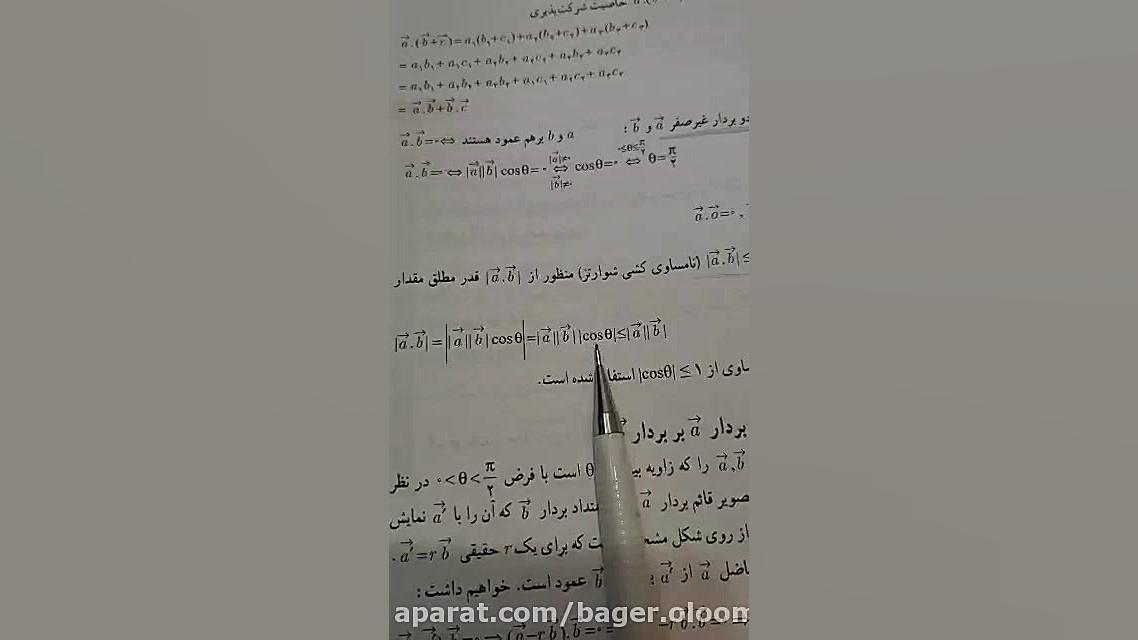 خاصیت شرکت‌پذیری
a⃗.(b⃗+c⃗)=a₁(b₁+c₁)+a₂(b₂+c₂)+a₃(b₃+c₃)
= a₁b₁+a₁c₁+a₂b₂+a₂c₂+a₃b₃+a₃c₃
= a₁b₁+a₂b₂+a₃b₃+a₁c₁+a₂c₂+a₃c₃
= a⃗.b⃗+b⃗.c⃗
دو بردار غیرصفر a⃗ و b⃗ :
a و b برهم عمود هستند ⇔ a⃗.b⃗=۰
a⃗.b⃗=۰ ⇔ |a⃗||b⃗| cosθ=۰ ⇔ (|a⃗|≠۰, |b⃗|≠۰) cosθ=۰ ⇔ (۰≤θ≤π/۲) θ=π/۲
a⃗.o⃗=۰ ,
|a⃗.b⃗|≤ (نامساوی کشی شوارتز) منظور از |a⃗.b⃗| قدر مطلق مقدار
|a⃗.b⃗|=||a⃗||b⃗| cosθ|=|a⃗||b⃗||cosθ|≤|a⃗||b⃗|
ساوی از |cosθ|≤۱ استفا شده است.
بردار a⃗ بر بردار
a⃗,b⃗ را که زاویه بی θ است با فرض ۰<θ<π/۲ در نظر
صویر قائم بردار a⃗ متداد بردار b⃗ که آن را با a⃗′ نمایش
از روی شکل مشخ ت که برای یک r حقیقی a⃗′=r b⃗ .
ناضل a⃗ از a⃗′ b⃗ عمود است. خواهیم داشت :
(a⃗−r b⃗).b⃗=۰
aparat.com/bager.oloom